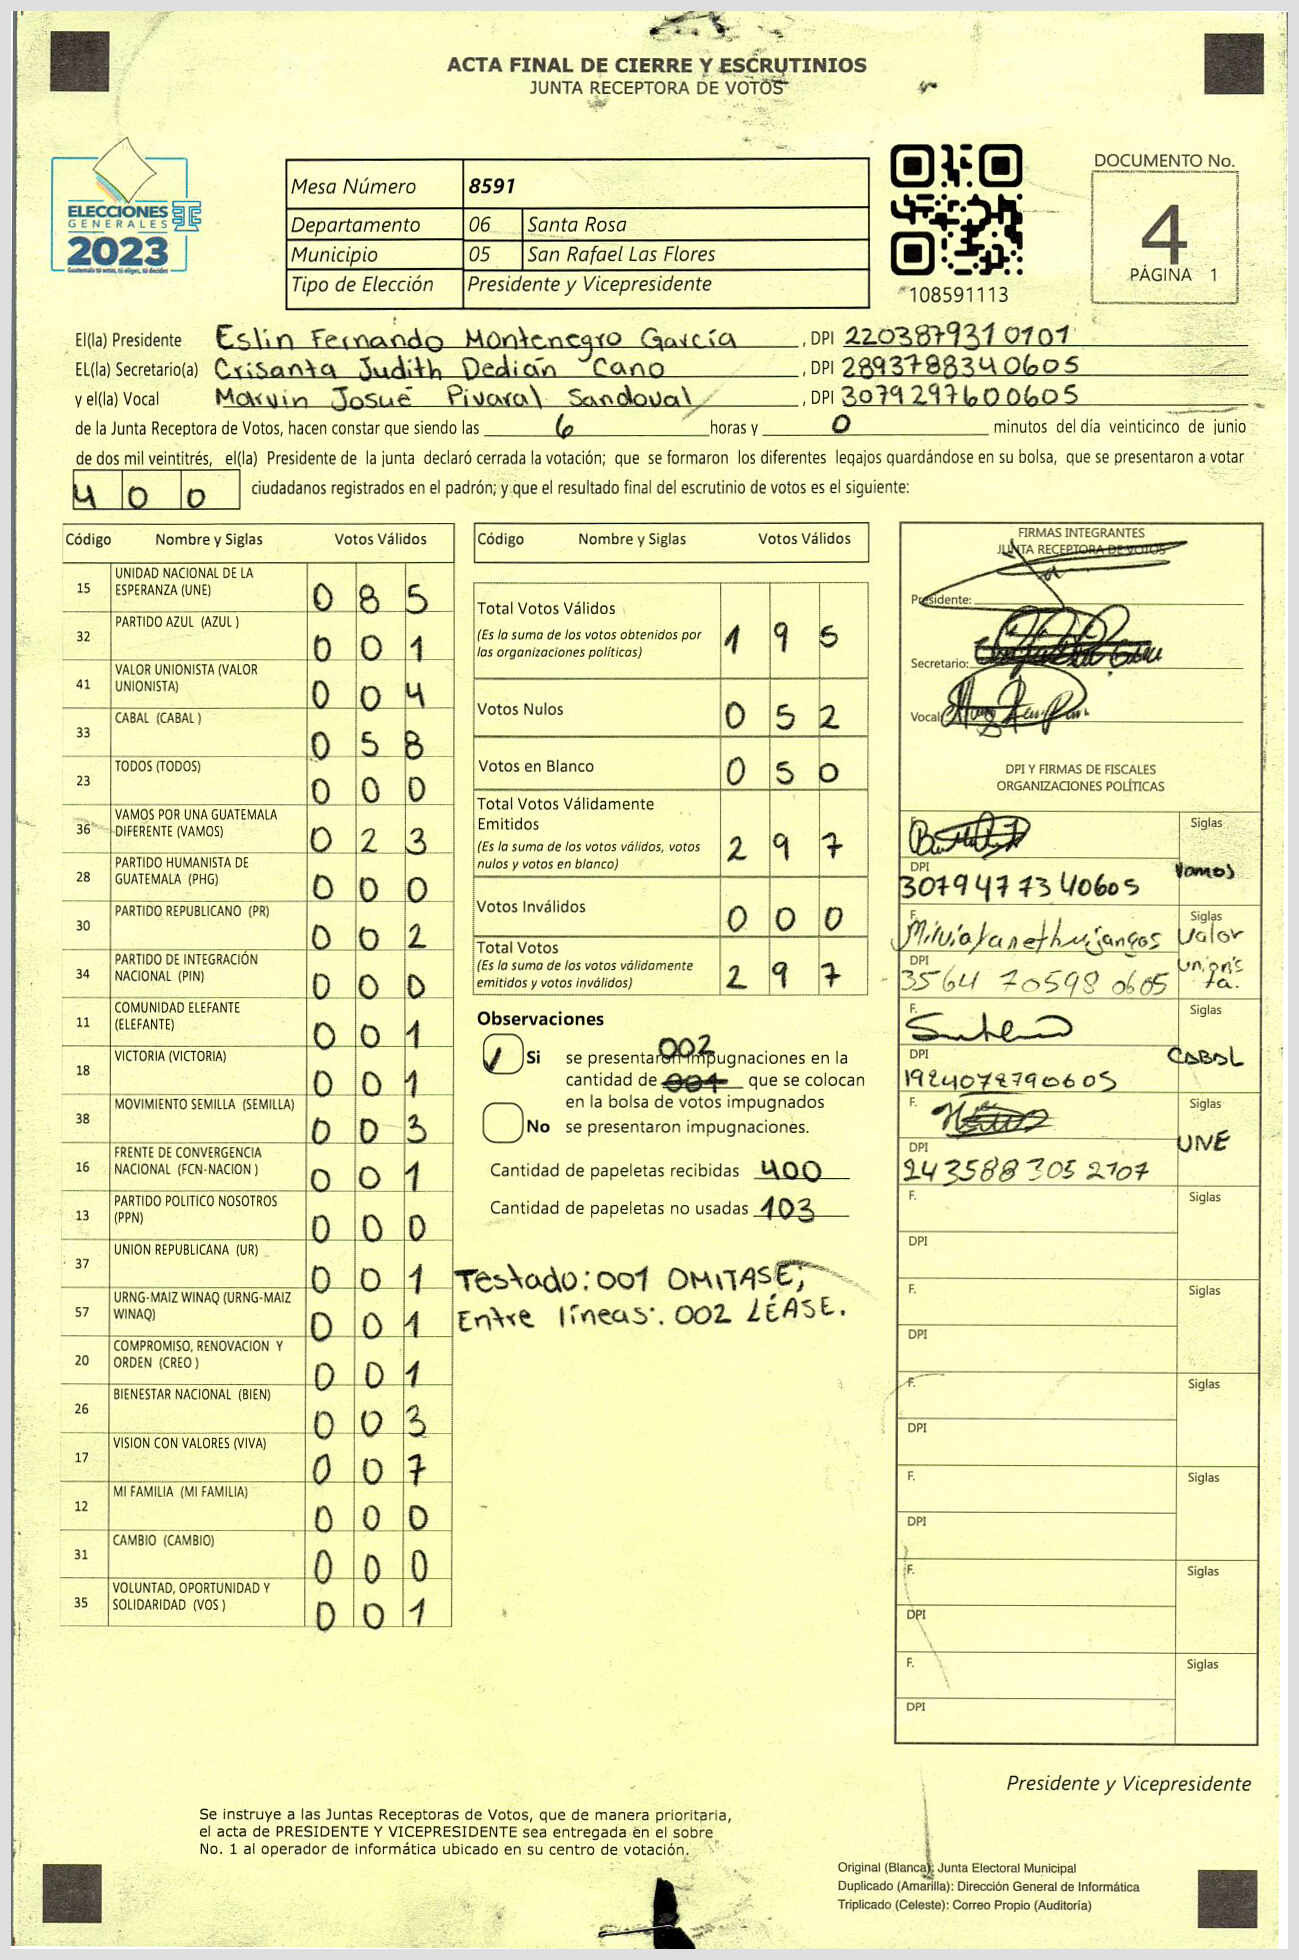 ACTA FINAL DE CIERRE Y ESCRUTINIOS
JUNTA RECEPTORA DE VOTOS
ELECCIONES
GENERALES
2023
Guatemala tú votas, tú eliges, tú decides
Mesa Número 8591
Departamento 06 Santa Rosa
Municipio 05 San Rafael Las Flores
Tipo de Elección Presidente y Vicepresidente
108591113
DOCUMENTO No.
4
PÁGINA 1
El(la) Presidente Eslin Fernando Montenegro García, DPI 2203879310101
EL(la) Secretario(a) Crisanta Judith Dedián Cano, DPI 2893788340605
y el(la) Vocal Marvin Josué Pivaral Sandoval, DPI 3079297600605
de la Junta Receptora de Votos, hacen constar que siendo las 6 horas y 0 minutos del día veinticinco de junio
de dos mil veintitrés, el(la) Presidente de la junta declaró cerrada la votación; que se formaron los diferentes legajos guardándose en su bolsa, que se presentaron a votar
400 ciudadanos registrados en el padrón; y que el resultado final del escrutinio de votos es el siguiente:
Código Nombre y Siglas Votos Válidos
15 UNIDAD NACIONAL DE LA
ESPERANZA (UNE) 085
32 PARTIDO AZUL (AZUL ) 001
41 VALOR UNIONISTA (VALOR
UNIONISTA) 004
33 CABAL (CABAL ) 058
23 TODOS (TODOS) 000
36 VAMOS POR UNA GUATEMALA
DIFERENTE (VAMOS) 023
28 PARTIDO HUMANISTA DE
GUATEMALA (PHG) 000
30 PARTIDO REPUBLICANO (PR) 002
34 PARTIDO DE INTEGRACIÓN
NACIONAL (PIN) 000
11 COMUNIDAD ELEFANTE
(ELEFANTE) 001
18 VICTORIA (VICTORIA) 001
38 MOVIMIENTO SEMILLA (SEMILLA) 003
16 FRENTE DE CONVERGENCIA
NACIONAL (FCN-NACION ) 001
13 PARTIDO POLITICO NOSOTROS
(PPN) 000
37 UNION REPUBLICANA (UR) 001
57 URNG-MAIZ WINAQ (URNG-MAIZ
WINAQ) 001
20 COMPROMISO, RENOVACION Y
ORDEN (CREO ) 001
26 BIENESTAR NACIONAL (BIEN) 003
17 VISION CON VALORES (VIVA) 007
12 MI FAMILIA (MI FAMILIA) 000
31 CAMBIO (CAMBIO) 000
35 VOLUNTAD, OPORTUNIDAD Y
SOLIDARIDAD (VOS ) 001
Código Nombre y Siglas Votos Válidos
Total Votos Válidos 195
(Es la suma de los votos obtenidos por
las organizaciones políticas)
Votos Nulos 052
Votos en Blanco 050
Total Votos Válidamente
Emitidos 297
(Es la suma de los votos válidos, votos
nulos y votos en blanco)
Votos Inválidos 000
Total Votos 297
(Es la suma de los votos válidamente
emitidos y votos inválidos)
Observaciones
002
Si se presentaron impugnaciones en la
cantidad de 001 que se colocan
en la bolsa de votos impugnados
No se presentaron impugnaciones.
Cantidad de papeletas recibidas 400
Cantidad de papeletas no usadas 103
Testado: 001 OMITASE;
Entre líneas: 002 LÉASE.
FIRMAS INTEGRANTES
JUNTA RECEPTORA DE VOTOS
Presidente:
Secretario:
Vocal:
DPI Y FIRMAS DE FISCALES
ORGANIZACIONES POLÍTICAS
Siglas
DPI Vamos
3079477340605
F. Siglas
Valor
DPI Unionis
3564705980605 ta.
F. Siglas
DPI CABAL
1924072790605
F. Siglas
DPI UNE
2435883052107
F. Siglas
DPI
F. Siglas
DPI
F. Siglas
DPI
F. Siglas
DPI
F. Siglas
DPI
F. Siglas
DPI
Presidente y Vicepresidente
Se instruye a las Juntas Receptoras de Votos, que de manera prioritaria,
el acta de PRESIDENTE Y VICEPRESIDENTE sea entregada en el sobre
No. 1 al operador de informática ubicado en su centro de votación.
Original (Blanca): Junta Electoral Municipal
Duplicado (Amarilla): Dirección General de Informática
Triplicado (Celeste): Correo Propio (Auditoría)